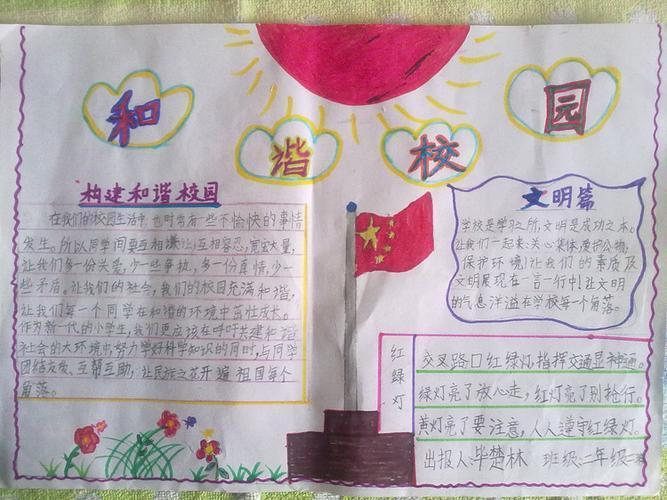 和
谐
校
园
构建和谐校园
在我们的校园生活中,也时常有一些不愉快的事情
发生。所以同学间要互相谦让,互相容忍,宽宏大量,
让我们多一份关爱,少一些争执,多一份真情,少一
些矛盾。让我们的社会,我们的校园充满和谐,
让我们每一个同学在和谐的环境中茁壮成长。
作为新一代的小学生,我们更应该在呼吁共建和谐
社会的大环境中,努力学好科学知识的同时,与同学
团结友爱、互帮互助,让民族之花开遍祖国每个
角落。
文明篇
学校是学习之所,文明是成功之本。
让我们一起来:关心集体,爱护公物,
保护环境!让我们的素质及
文明展现在一言一行中!让文明
的气息洋溢在学校每个角落。
红绿灯
交叉路口红绿灯,指挥交通显神通。
绿灯亮了放心走,红灯亮了别抢行。
黄灯亮了要注意,人人遵守红绿灯。
出报人:毕楚林 班级:二年级